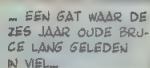 ... EEN GAT WAAR DE
ZES JAAR OUDE BRU-
CE LANG GELEDEN
IN VIEL...